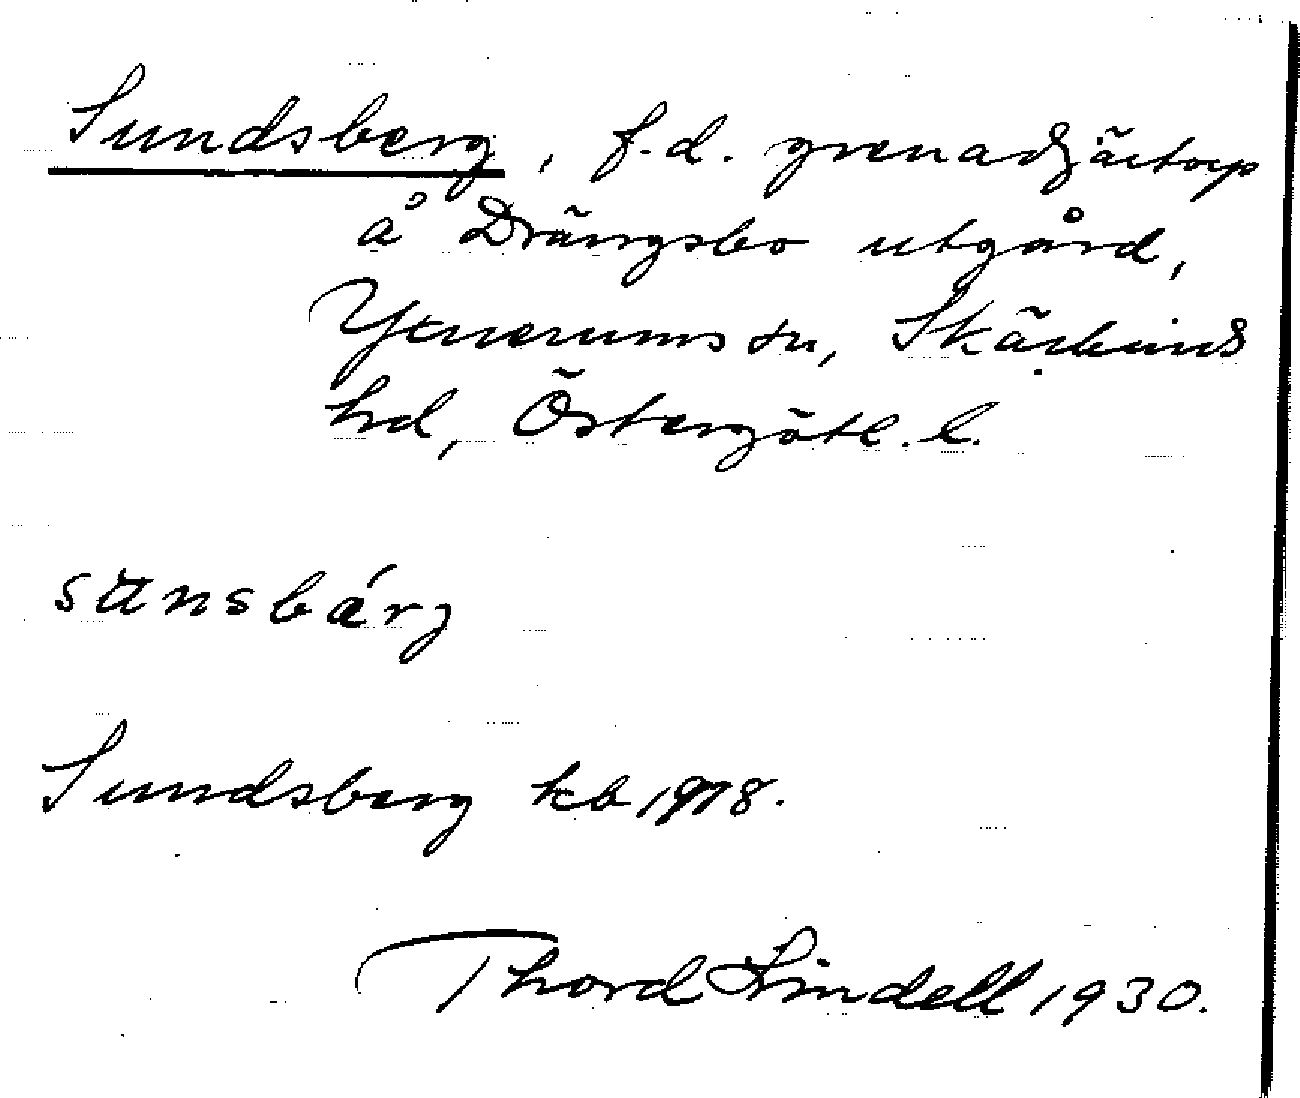 Sundsberg, f.d. grenadjärtorp
å Drängsbo utgård,
Yxnerums sn, Skärkinds
hd, Östergötl. l.
sunsbärg
Sundsberg kb 1918.
Thord Lindell 1930.